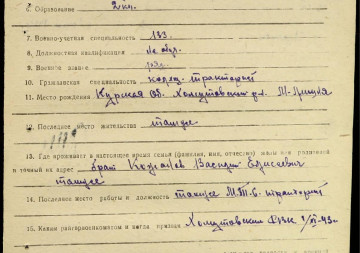 6. Образование 2 кл.
7. Военно-учетная специальность 133
8. Должностная квалификация не обуч.
9. Военное звание ряд.
10. Гражданская специальность колхоз. тракторист
11. Место рождения Курская об. Хомутовский р.
12. Последнее место жительства тамже
13. Где проживает в настоящее время семья (фамилия, имя, отчество) жены или родителей
и точный их адрес брат Василий Елисеевич
тамже
14. Последнее место работы и должность тамже тракторист
15. Каким райвоенкоматом и когда призван Хомутовским РВК